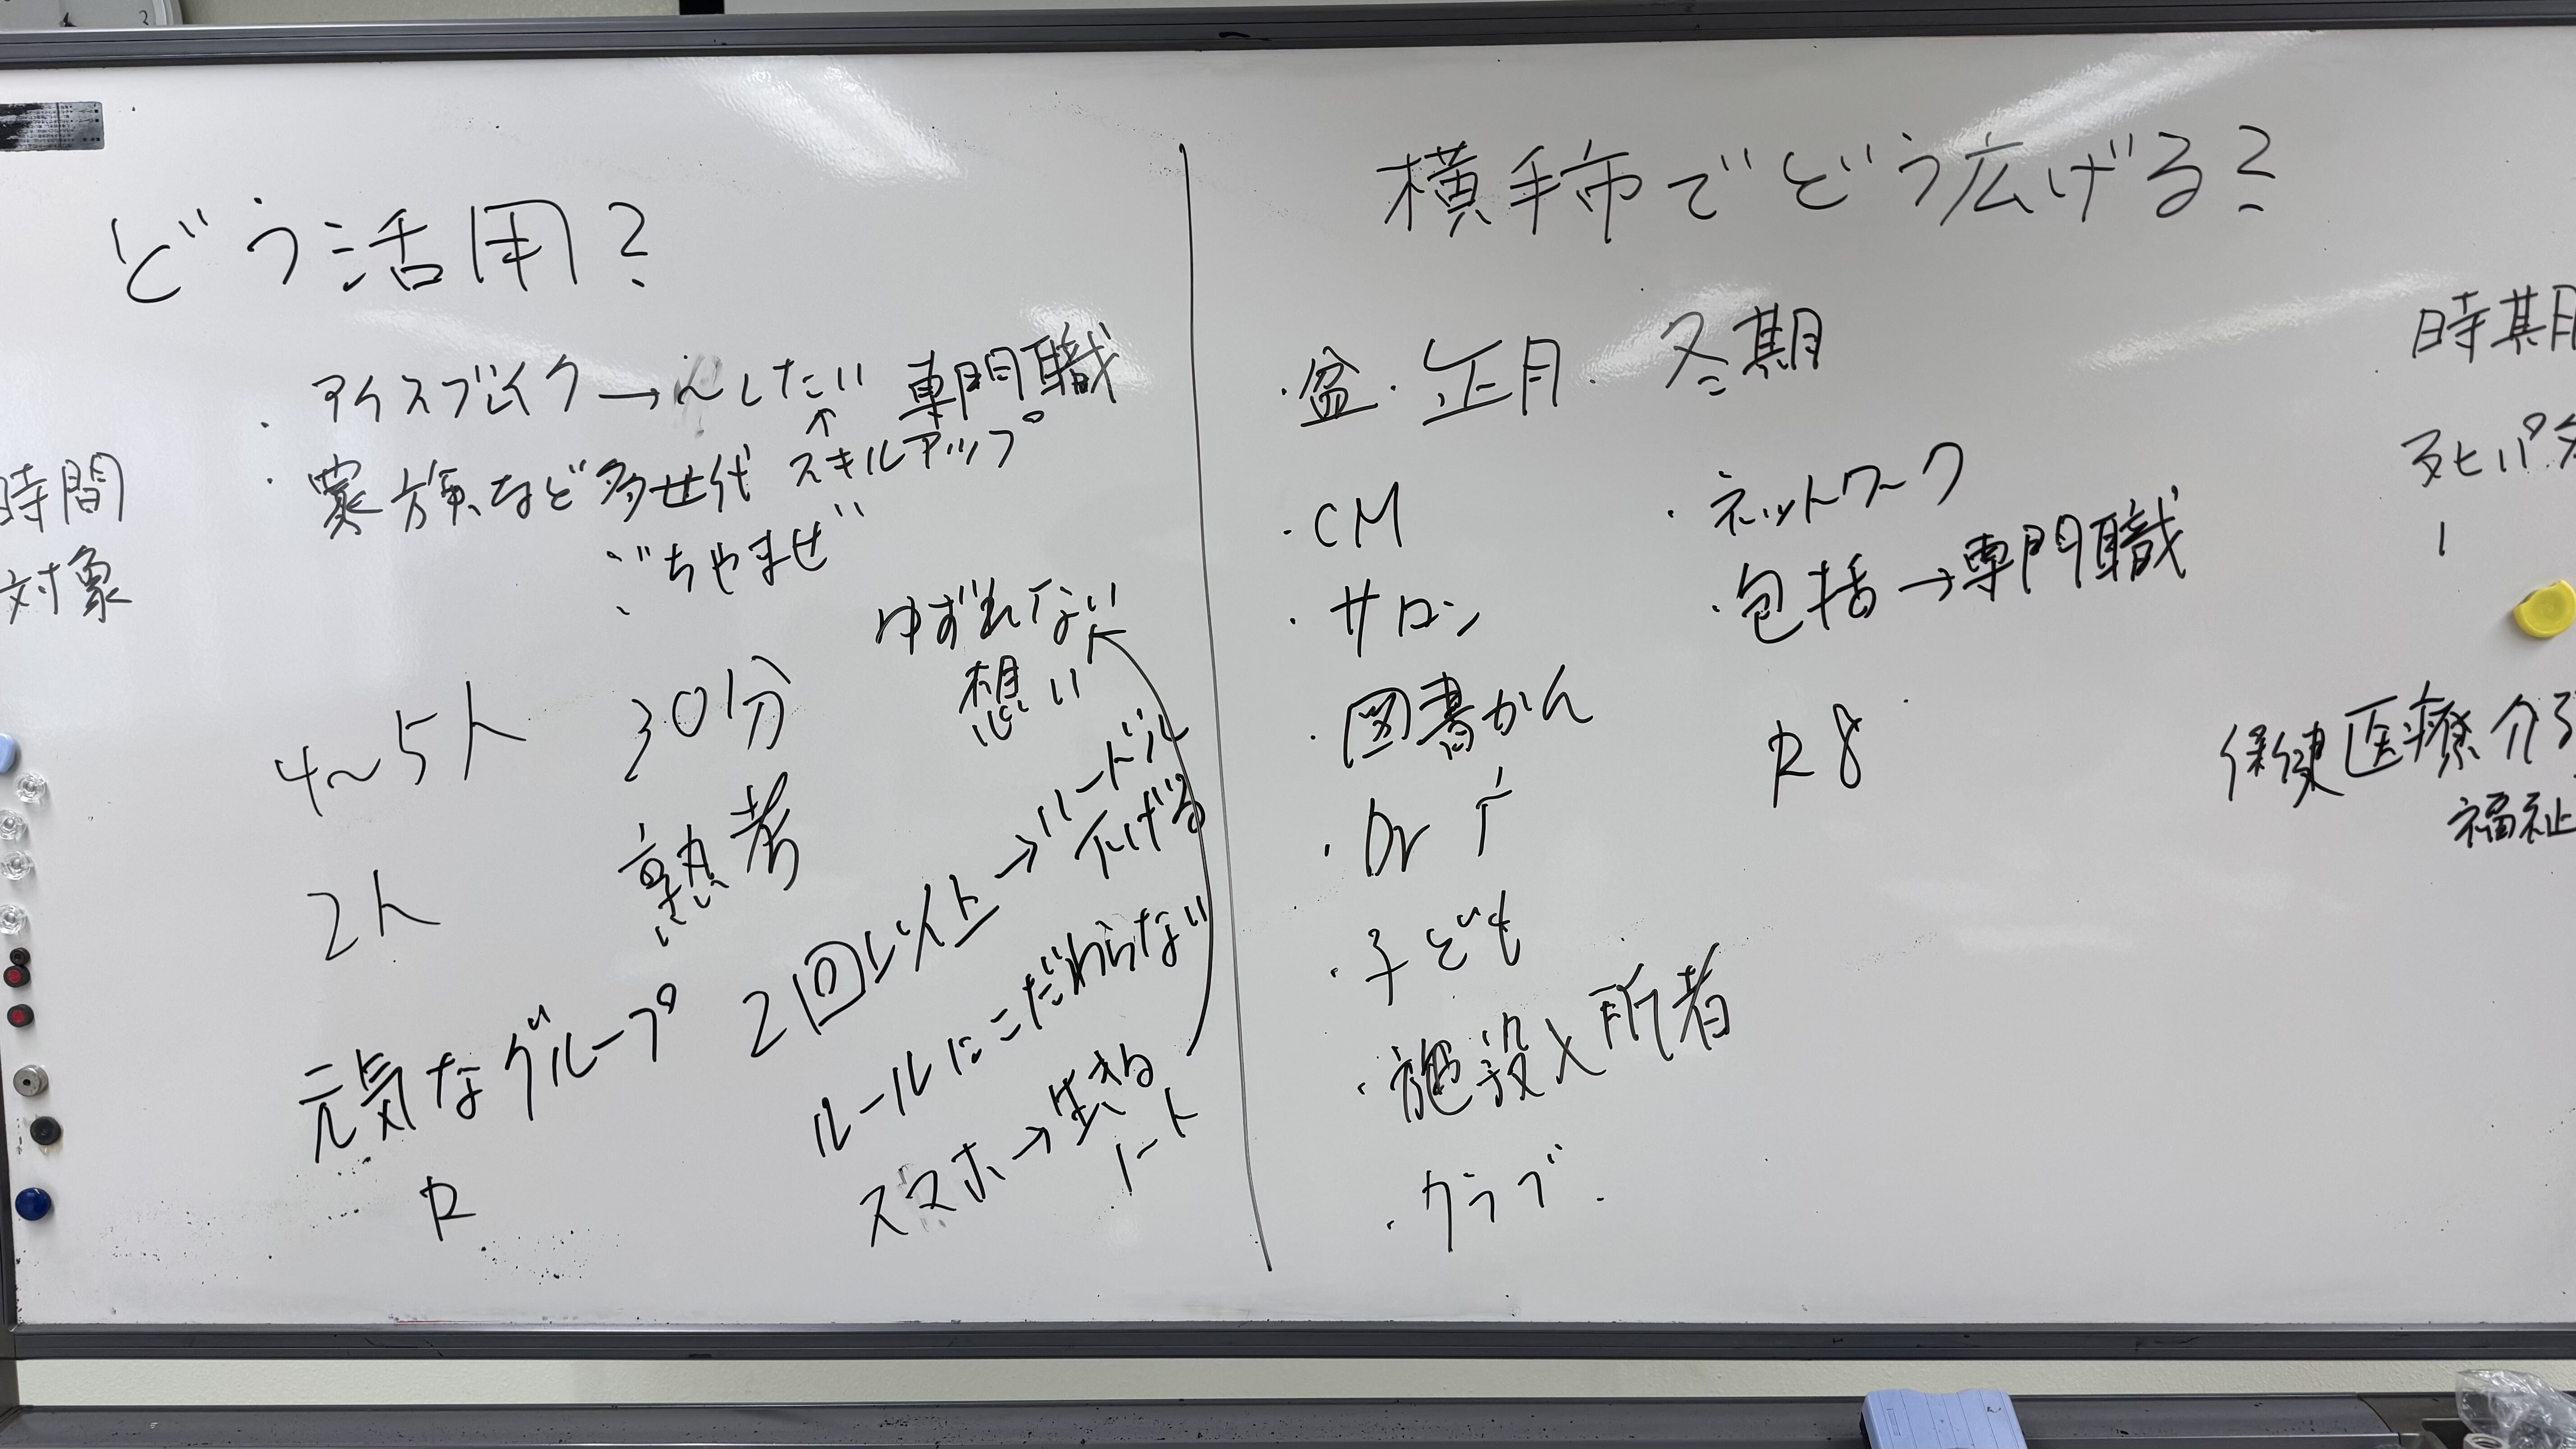 どう活用?
時間
対象
・アイスブレイク→〜したい 専門職
↑
スキルアップ
・家族など多世代
ごちゃまぜ
ゆずれない
想い
4〜5人 30分
2人 熟考
元気なグループ 2回以上→ハードル
下げる
ルールにこだわらない
スマホ→生きる
ノート
R
横手市でどう広げる?
・盆・正月・冬期
・CM
・サロン
・図書かん
・Dr
・子ども
・施設入所者
・クラブ
・ネットワーク
・包括→専門職
R8
時期
保健医療介
福祉